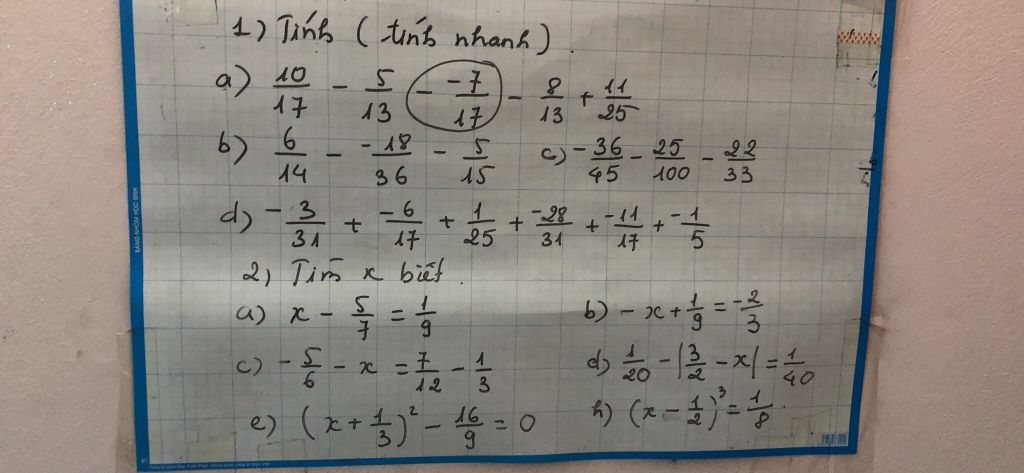 1) Tính ( tính nhanh )
a) 10/17 - 5/13 - -7/17 - 8/13 + 11/25
b) 6/14 - -18/36 - 5/15 c) -36/45 - 25/100 - 22/33
d) -3/31 + -6/17 + 1/25 + -28/31 + -11/17 + -1/5
2) Tìm x biết.
a) x - 5/7 = 1/9 b) - x + 1/9 = -2/3
c) -5/6 - x = 7/12 - 1/3 d) 1/20 - |3/2 - x| = 1/40
e) (x + 1/3)² - 16/9 = 0 h) (x - 1/2)³ = 1/8.
BẢNG NHÓM HỌC SINH